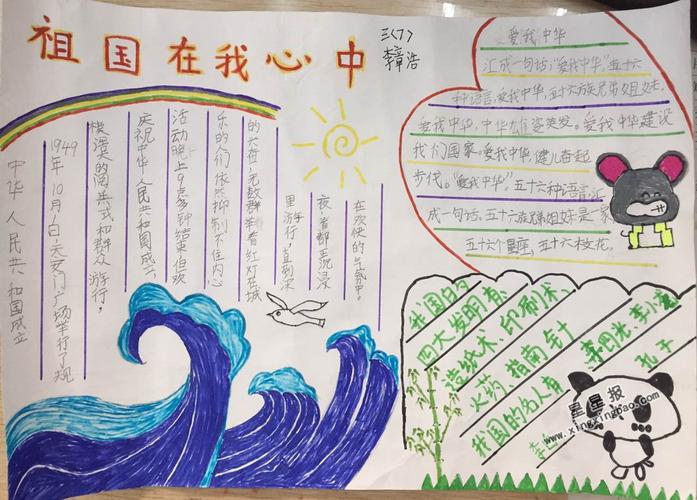 祖国在我心中
三(7)
李章浩
中华人民共和国成立
1949年10月1日天安门广场举行了规
模浩大的阅兵式和群众游行，
庆祝中华人民共和国成立，
活动晚上9点多钟结束但欢
乐的人们依然抑制不住内心
的大位，无数群举着红灯在城
里游行，直到深
夜，首都沉浸
在欢快的气氛中。
爱我中华
汇成一句话，"爱我中华"，五十六
种语言，爱我中华，五十六族兄弟姐妹，
爱我中华，中华雄姿英发。爱我中华建设
我们国家，爱我中华，健儿奋起
步伐。"爱我中华"。五十六种语言，汇
成一句话，五十六族兄弟姐妹是一家
五十六个星座，五十六枝花。
我国的
四大发明有
造纸术、印刷术、
火药 指南针
我国的名人有
李四光、李小龙
孔子
李白
星星报
www.xingxingbao.com